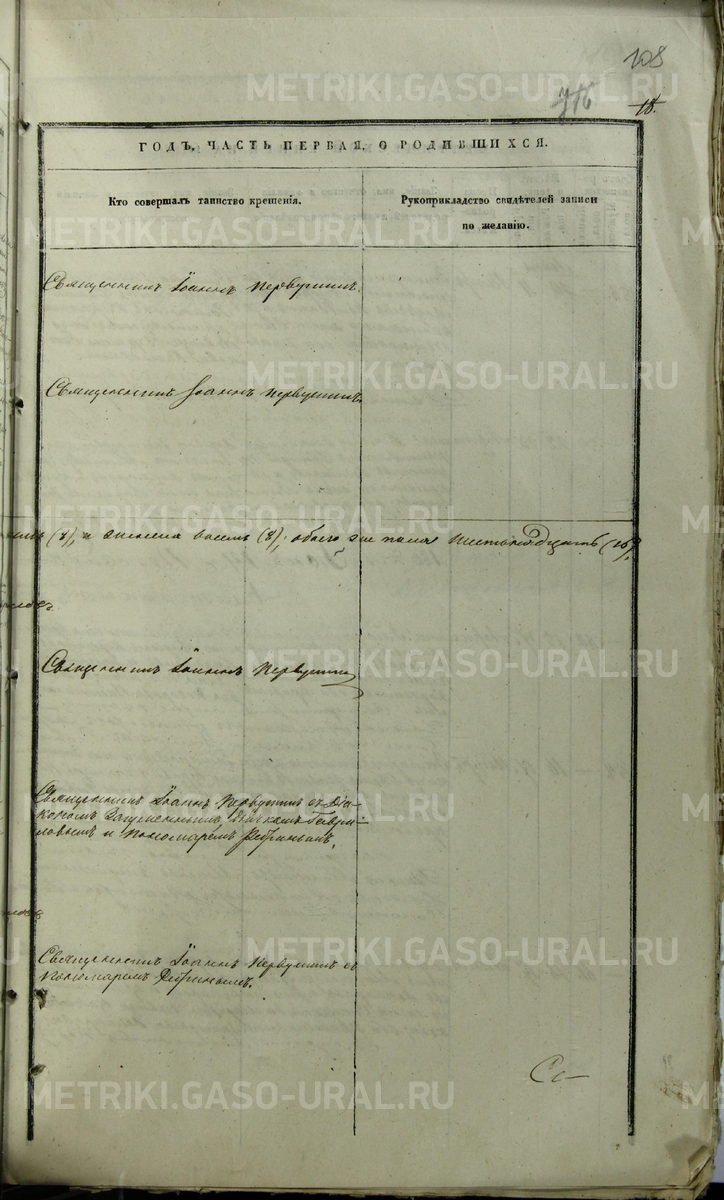 108
716
18.
ГОДЪ, ЧАСТЬ ПЕРВАЯ, О РОДИВШИХСЯ.
Кто совершалъ таинство крещенія.
Рукоприкладство свидѣтелей записи
по желанію.
Священникъ Іоаннъ Первушинъ.
Священникъ Іоаннъ Первушинъ.
(8), и женска восемь (8), обоего же пола шестьнадцать (16).
Священникъ Іоаннъ Первушинъ
Священникъ Іоаннъ Первушинъ съ Діа-
кономъ Гаври-
ловымъ и пономаремъ
Священникъ Іоаннъ Первушинъ съ
Пономаремъ
Сс
METRIKI.GASO-URAL.RU